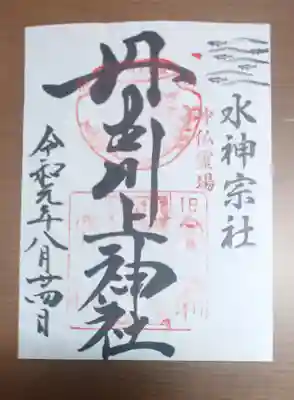 水神宗社
神仏霊場
丹生川上神社
令和元年八月廿四日